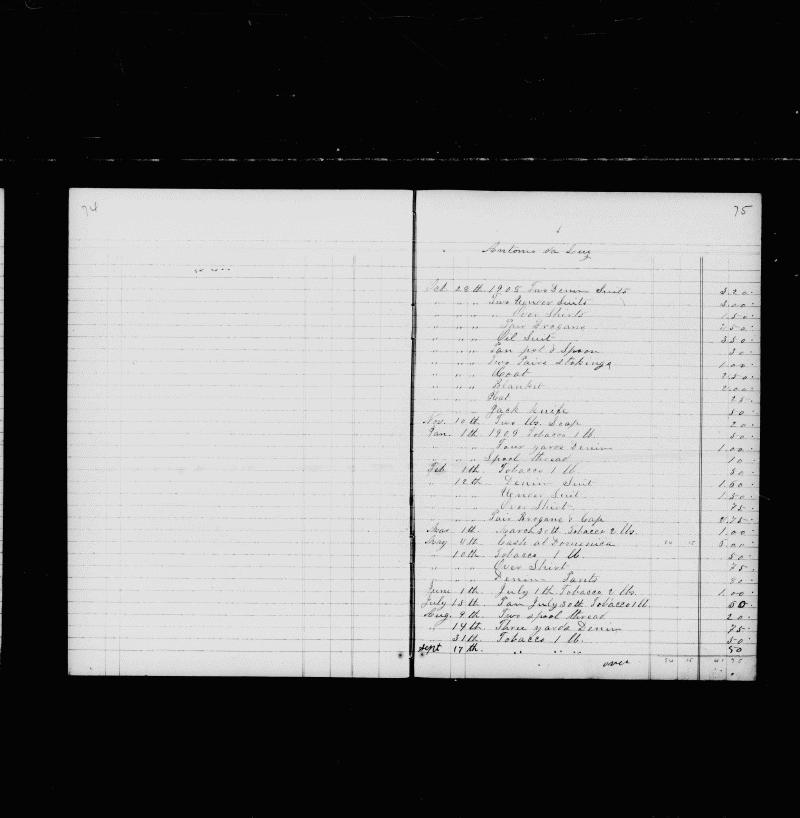 74
75
Antonio da Luz
Oct. 28th 1908 Two Denim Suits 3.20
" " " Two Under Suits 3.00
" " " " Over Shirts 1.50
" " " Pair Brogans 2.50
" " " Oil Suit 3.50
" " " Pan pot & Spoon 30
" " " Two Pairs stockings 1.00
" " " Coat 2.50
" " " Blanket 2.00
" " " Hat 25
" " " Jack knife 50
Nov. 10th Two lbs. Soap 20
Jan. 1th 1909 Tobacco 1 lb. 50
" " " Four yards Denim 1.00
" " " Spool thread 10
Feb 1th Tobacco 1 lb 50
" 12th Denim Suit 1.60
" " " Under Suit 1.50
" " " Over Shirt 75
" " " Pair Brogans & Cap 2.75
Mar. 1th March 30th Tobacco 2 lbs. 1.00
May Cash at Domenica 24 15 5.00
" 10th Tobacco 1 lb. 50
" " " Over Shirt 75
" " " Denim Pants 80
June 1th July 1th Tobacco 2 lbs. 1.00
July 15th Pan July 30th Tobacco 1 lb. 50
Aug. 9th Two spool thread 20
" 14th Three yards Denim 75
" 31th Tobacco 1 lb. 50
Sept 17th " " " 50
over 24 15 41 75